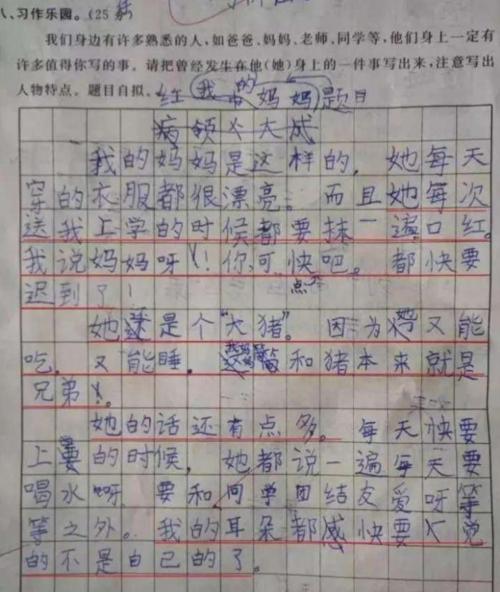 八、习作乐园。(25
我们身边有许多熟悉的人,如爸爸、妈妈、老师、同学等,他们身上一定有
许多值得你写的事。请把曾经发生在他(她)身上的一件事写出来,注意写出
人物特点。题目自拟。
红 我的妈妈 题目
病领 大成
我的妈妈是这样的,她每天
穿的衣服都很漂亮。而且她每次
送我上学的时候都要抹一遍口红。
我说妈妈呀!你可快点吧。都快要
迟到了!
她还是个“大猪”。因为猪又能
吃,又能睡。和猪本来就是
兄弟
她的话还有点多。每天快要
上的时候,她都说一遍每天要
喝水呀要和同学团结友爱呀等
等之外。我的耳朵都感快要
的不是自己的了。